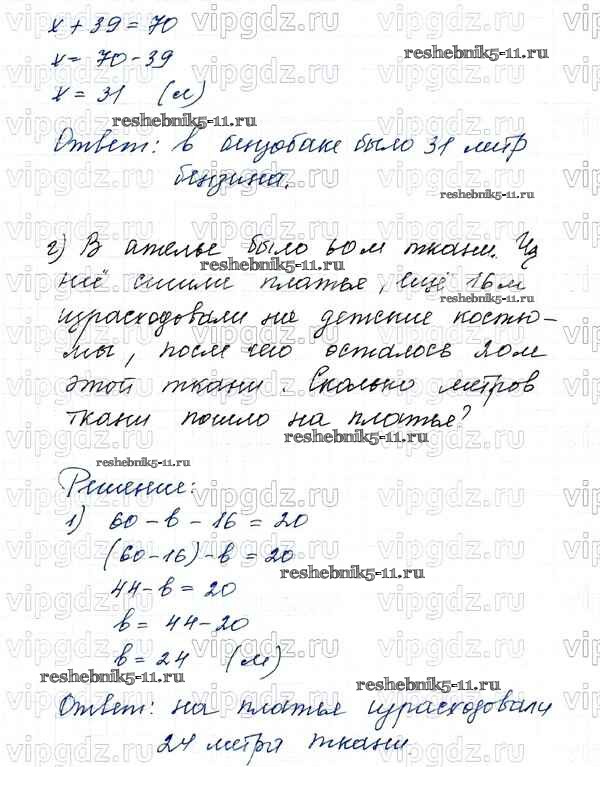 x + 39 = 70
x = 70 - 39
x = 31 (л)
Ответ: в бензобаке было 31 литр
бензина.
г) В ателье было 60м ткани. Из
неё сшили платья, ещё 16м
израсходовали на детские костю-
мы, после чего осталось 20м
этой ткани. Сколько метров
ткани пошло на платья?
Решение:
1) 60 - в - 16 = 20
(60-16) - в = 20
44 - в = 20
в = 44 - 20
в = 24 (м)
Ответ: на платья израсходовали
24 метра ткани
vipgdz.ru
reshebnik5-11.ru